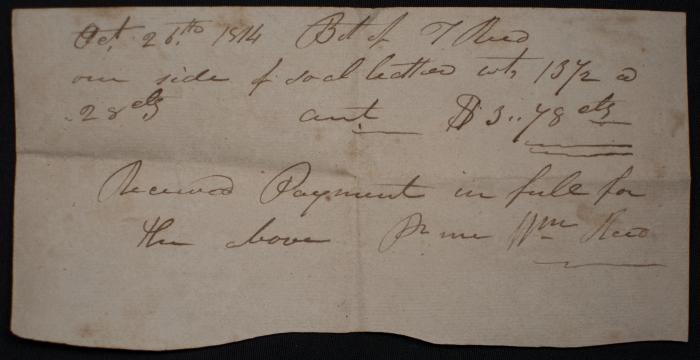 Oct. 26.th 1814 Bot of T Reed
one side of soal leather wt 13 1/2 @
28 cts amt $3..78 cts
Received Payment in full for
the above Pr me Wm Reed